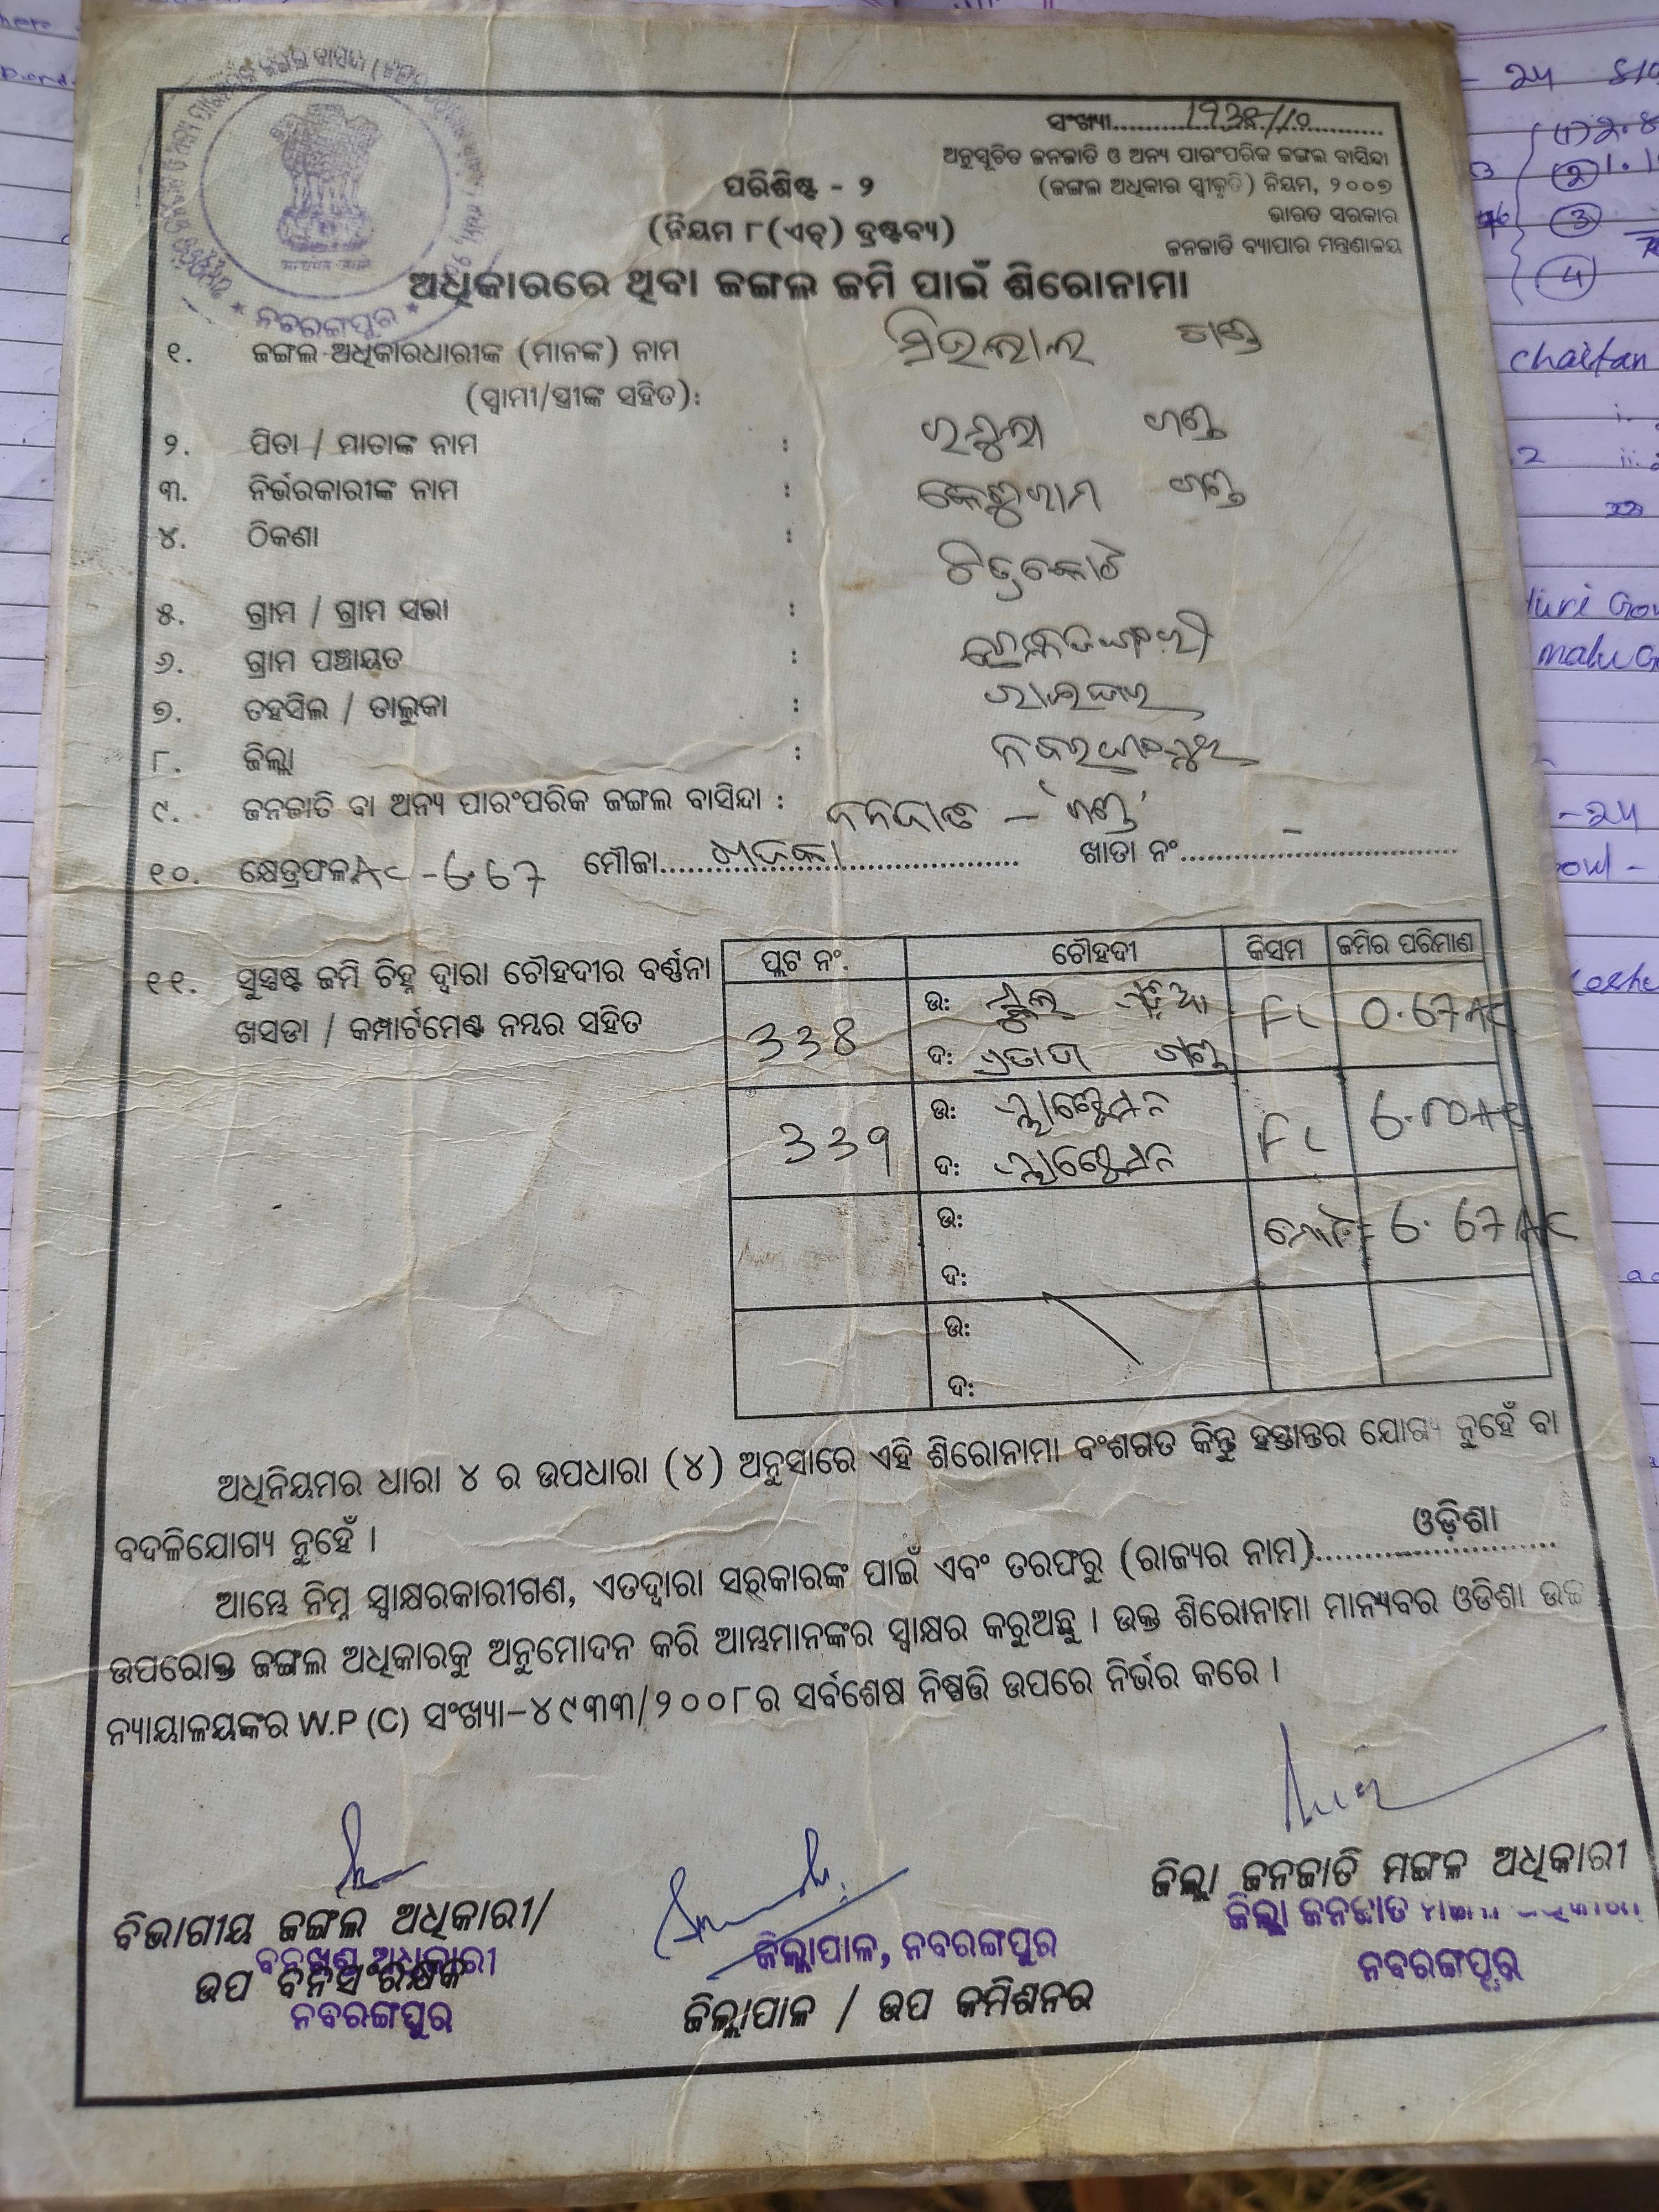 ସଂଖ୍ୟା..........1738/10..........
ଅନୁସୂଚିତ ଜନଜାତି ଓ ଅନ୍ୟ ପାରଂପରିକ ଜଙ୍ଗଲ ବାସିନ୍ଦା
(ଜଙ୍ଗଲ ଅଧିକାର ସ୍ୱୀକୃତି) ନିୟମ, ୨୦୦୭
ଭାରତ ସରକାର
ଜନଜାତି ବ୍ୟାପାର ମନ୍ତ୍ରଣାଳୟ
ପରିଶିଷ୍ଟ - ୨
(ନିୟମ ୮(ଏଚ୍) ଦ୍ରଷ୍ଟବ୍ୟ)
ଅଧିକାରରେ ଥିବା ଜଙ୍ଗଲ ଜମି ପାଇଁ ଶିରୋନାମା
* ନବରଙ୍ଗପୁର *
୧. ଜଙ୍ଗଲ ଅଧିକାରଧାରୀଙ୍କ (ମାନଙ୍କ) ନାମ
(ସ୍ୱାମୀ/ସ୍ତ୍ରୀଙ୍କ ସହିତ):
୨. ପିତା / ମାତାଙ୍କ ନାମ : ଗଣ୍ଡ
୩. ନିର୍ଭରକାରୀଙ୍କ ନାମ : ଗଣ୍ଡ
୪. ଠିକଣା : ଚିତ୍ରକୋଟ
୫. ଗ୍ରାମ / ଗ୍ରାମ ସଭା :
୬. ଗ୍ରାମ ପଞ୍ଚାୟତ :
୭. ତହସିଲ / ତାଲୁକା : ରାଇଘର
୮. ଜିଲ୍ଲା : ନବରଙ୍ଗପୁର
୯. ଜନଜାତି ବା ଅନ୍ୟ ପାରଂପରିକ ଜଙ୍ଗଲ ବାସିନ୍ଦା : ଜନଜାତି - 'ଗଣ୍ଡ'
୧୦. କ୍ଷେତ୍ରଫଳ Ac - 6.67 ମୌଜା.................... ଖାତା ନଂ..........-..........
୧୧. ସୁସ୍ପଷ୍ଟ ଜମି ଚିହ୍ନ ଦ୍ୱାରା ଚୌହଦୀର ବର୍ଣ୍ଣନା
ଖସଡା / କମ୍ପାର୍ଟମେଣ୍ଟ ନମ୍ବର ସହିତ
ପ୍ଲଟ ନଂ. ଚୌହଦୀ କିସମ ଜମିର ପରିମାଣ
338 ଉ: FL 0.67 Ac
ଦ: ଗଣ୍ଡ
339 ଉ: FL 6.00 Ac
ଦ:
ଉ: ମୋଟ= 6.67 Ac
ଦ:
ଉ:
ଦ:
ଅଧିନିୟମର ଧାରା ୪ ର ଉପଧାରା (୪) ଅନୁସାରେ ଏହି ଶିରୋନାମା ବଂଶଗତ କିନ୍ତୁ ହସ୍ତାନ୍ତର ଯୋଗ୍ୟ ନୁହେଁ ବା
ବଦଳିଯୋଗ୍ୟ ନୁହେଁ ।
ଆମ୍ଭେ ନିମ୍ନ ସ୍ୱାକ୍ଷରକାରୀଗଣ, ଏତଦ୍ୱାରା ସରକାରଙ୍କ ପାଇଁ ଏବଂ ତରଫରୁ (ରାଜ୍ୟର ନାମ)..........ଓଡ଼ିଶା..........
ଉପରୋକ୍ତ ଜଙ୍ଗଲ ଅଧିକାରକୁ ଅନୁମୋଦନ କରି ଆମ୍ଭମାନଙ୍କର ସ୍ୱାକ୍ଷର କରୁଅଛୁ । ଉକ୍ତ ଶିରୋନାମା ମାନ୍ୟବର ଓଡିଶା ଉଚ୍ଚ
ନ୍ୟାୟାଳୟଙ୍କର W.P (C) ସଂଖ୍ୟା-୪୯୩୩/୨୦୦୮ର ସର୍ବଶେଷ ନିଷ୍ପତ୍ତି ଉପରେ ନିର୍ଭର କରେ ।
ବିଭାଗୀୟ ଜଙ୍ଗଲ ଅଧିକାରୀ/
ବନଖଣ୍ଡ ଅଧିକାରୀ
ଉପ ବନସଂରକ୍ଷକ
ନବରଙ୍ଗପୁର
ଜିଲ୍ଲାପାଳ, ନବରଙ୍ଗପୁର
ଜିଲ୍ଲାପାଳ / ଉପ କମିଶନର
ଜିଲ୍ଲା ଜନଜାତି ମଙ୍ଗଳ ଅଧିକାରୀ
ଜିଲ୍ଲା ଜନଜାତି
ନବରଙ୍ଗପୁର